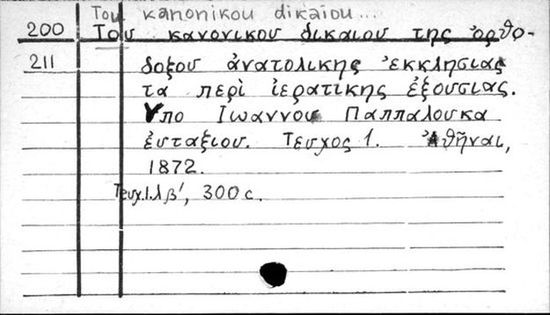 Του kanonikou dikaiou...
200 Του κανονικου δικαιου της ὀρθο-
211 δοξου ἀνατολικης ἐκκλησιας
τα περὶ ἱερατικης ἐξουσιας.
Ὑπο Ιωαννου Παππαλουκα
ἐυταξιου. Τευχος 1. Ἀθῆναι,
1872.
Τευχ. 1. λβ', 300 с.